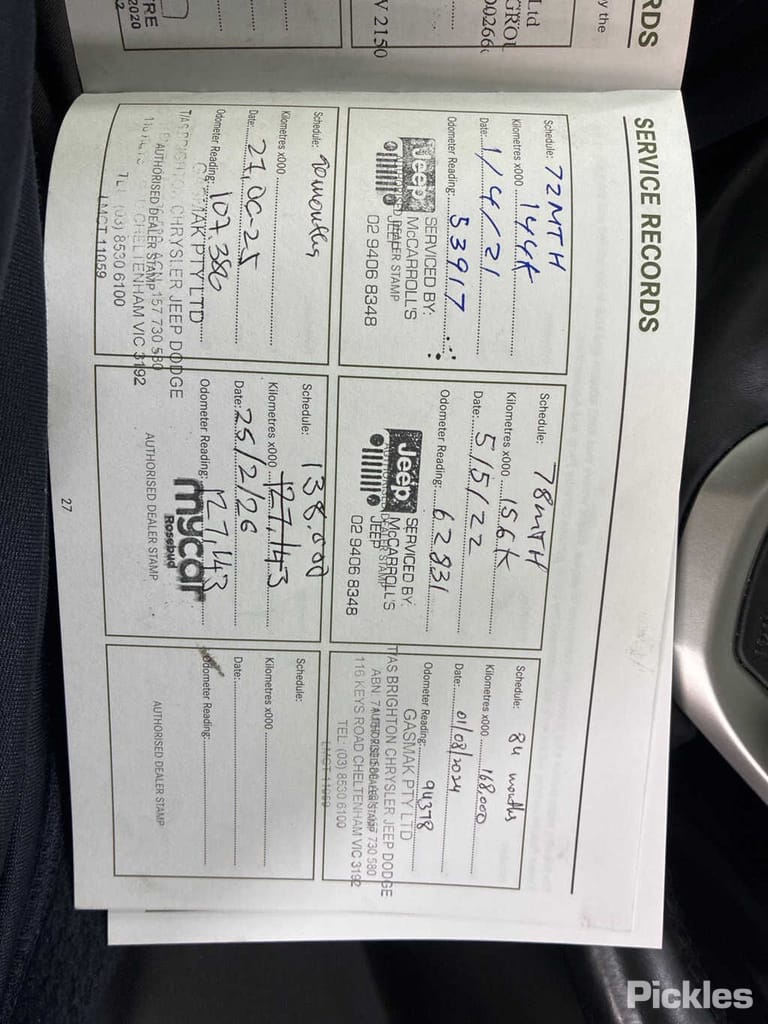 SERVICE RECORDS
Schedule: 72MTH
Kilometres x000 144K
Date: 1/4/21
Odometer Reading: 53917
Jeep
SERVICED BY:
McCARROLL'S
JEEP
02 9406 8348
AUTHORISED DEALER STAMP
Schedule: 78MTH
Kilometres x000 156K
Date: 5/5/22
Odometer Reading: 62831
Jeep
SERVICED BY:
McCARROLL'S
JEEP
02 9406 8348
AUTHORISED DEALER STAMP
Schedule: 84 months
Kilometres x000 168,000
Date: 01/08/2024
Odometer Reading: 94378
GASMAK PTY LTD
T/AS BRIGHTON CHRYSLER JEEP DODGE
AUTHORISED DEALER STAMP
116 KEYS ROAD CHELTENHAM VIC 3192
TEL: (03) 8530 6100
LMCT 11059
Schedule: 90 months
Kilometres x000
Date: 27,06-25
Odometer Reading: 107386
GASMAK PTY LTD
T/AS BRIGHTON CHRYSLER JEEP DODGE
AUTHORISED DEALER STAMP
157 730 580
CHELTENHAM VIC 3192
TEL: (03) 8530 6100
LMCT 11059
Schedule: 138.000
Kilometres x000 127,143
Date: 25/2/26
Odometer Reading: 127,143
mycar
Rosebud
AUTHORISED DEALER STAMP
Schedule:
Kilometres x000
Date:
Odometer Reading:
AUTHORISED DEALER STAMP
27
RDS
by the
Ltd
GROU
V 2150
2020
Pickles